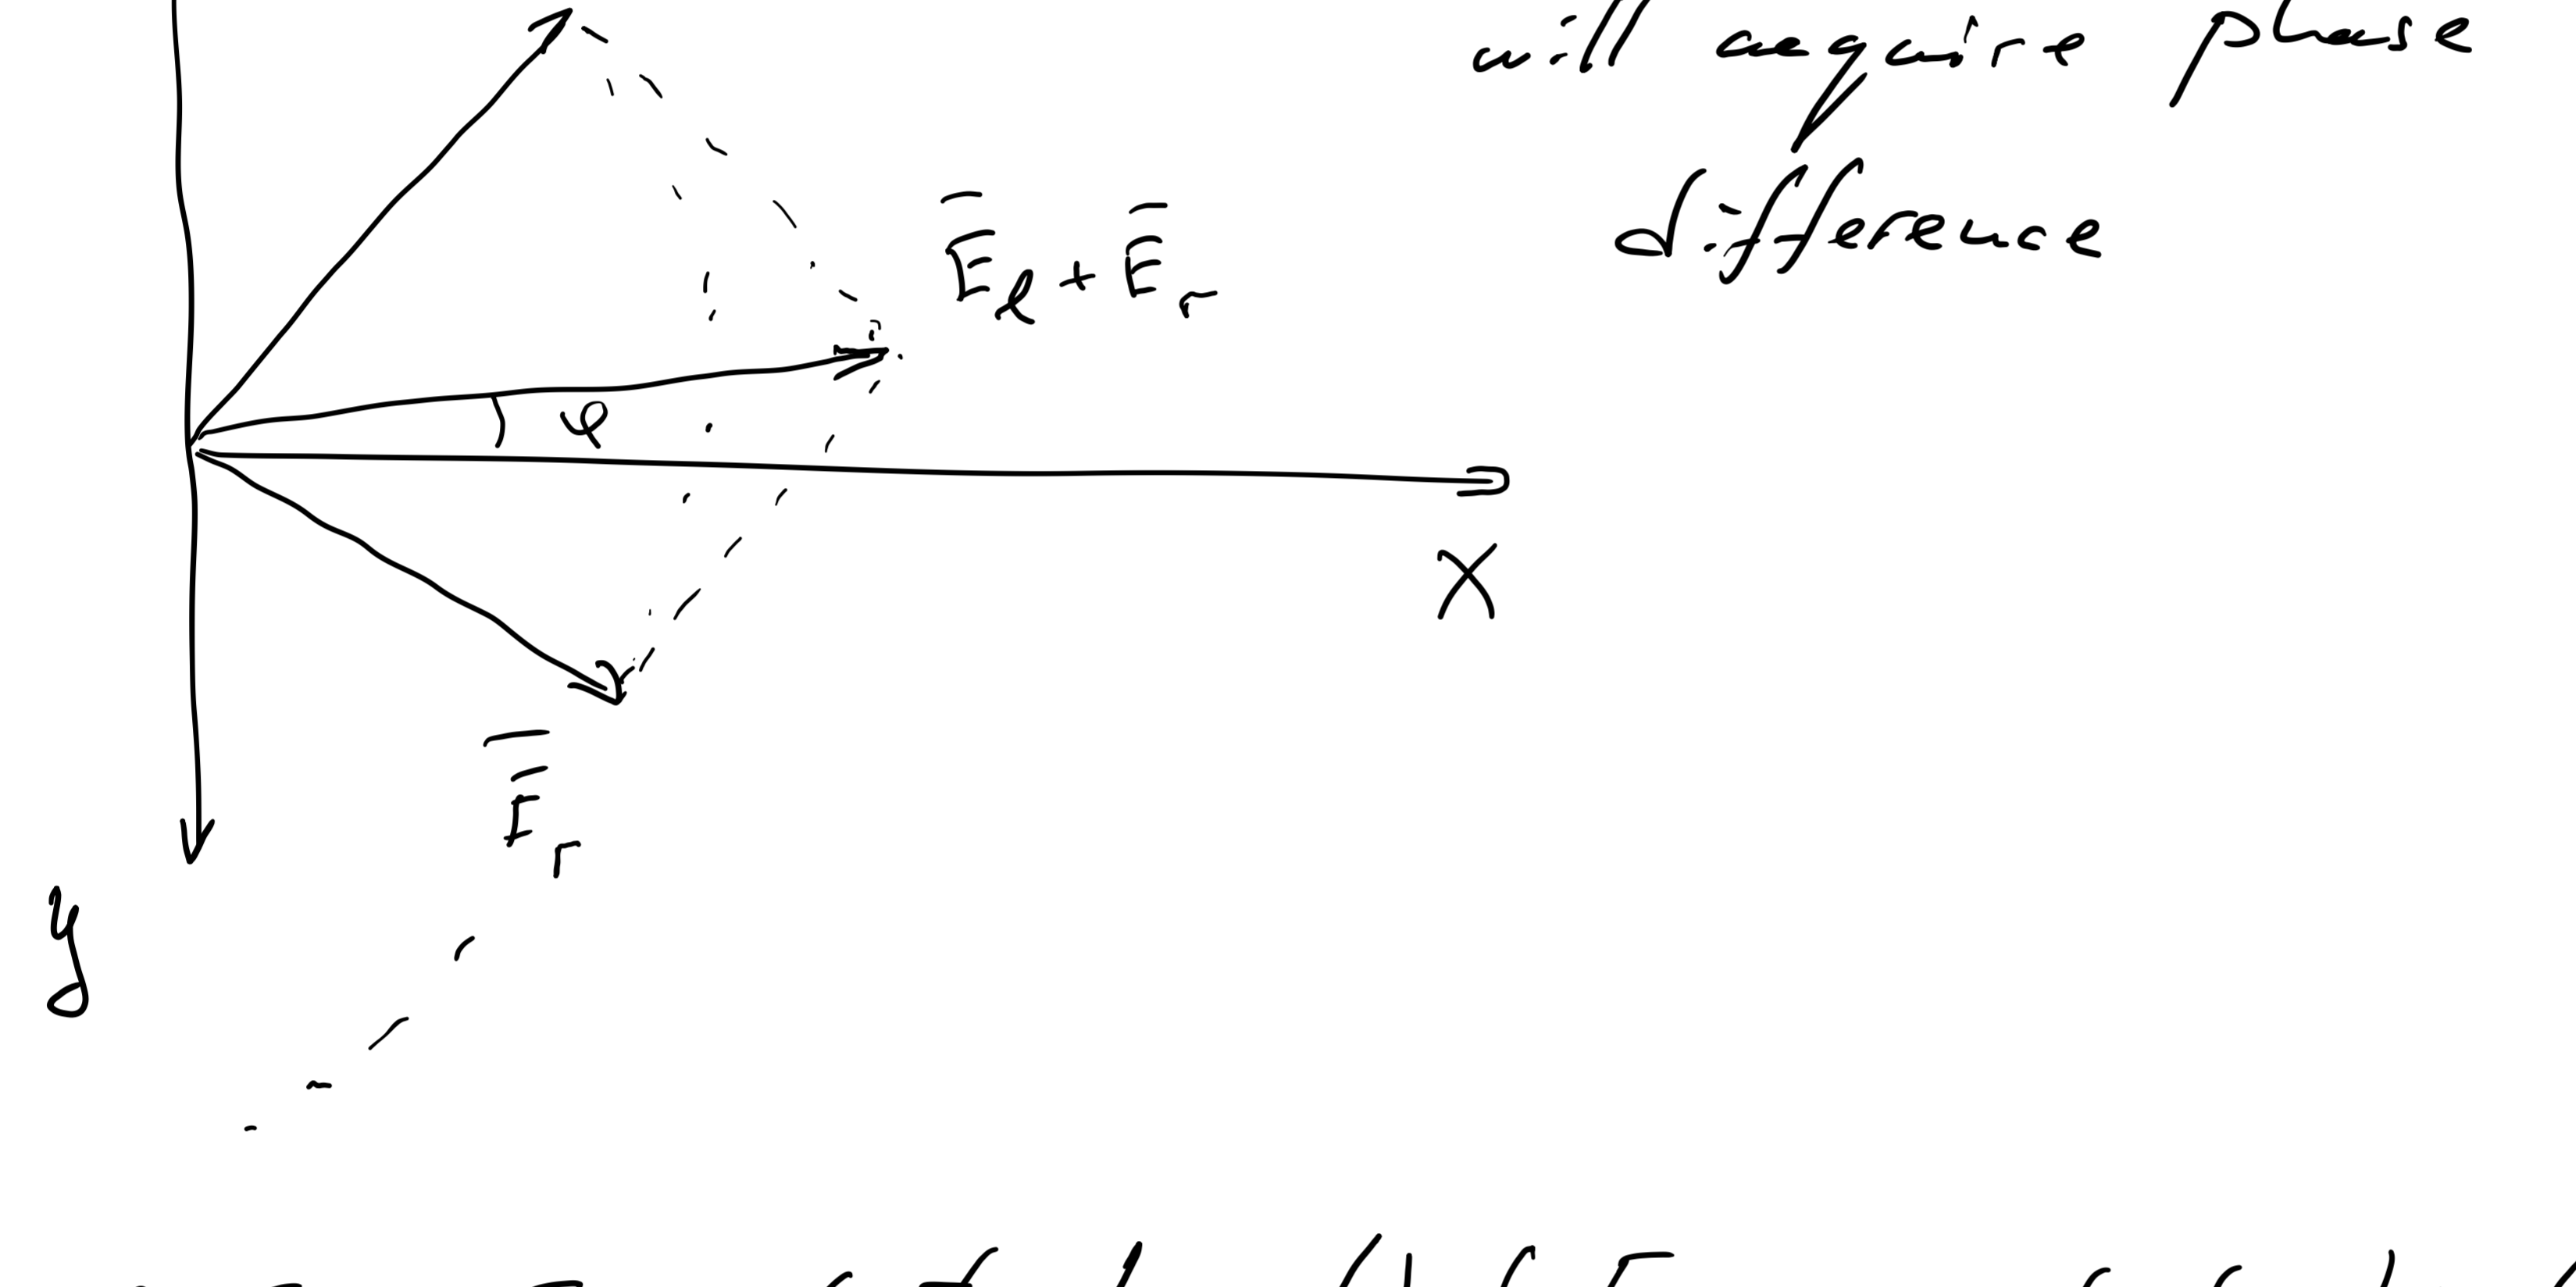 will acquire phase
difference
E̅ℓ + E̅r
φ
X
E̅r
y